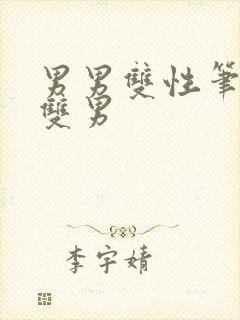 男男雙性筆
雙男
李宇婧